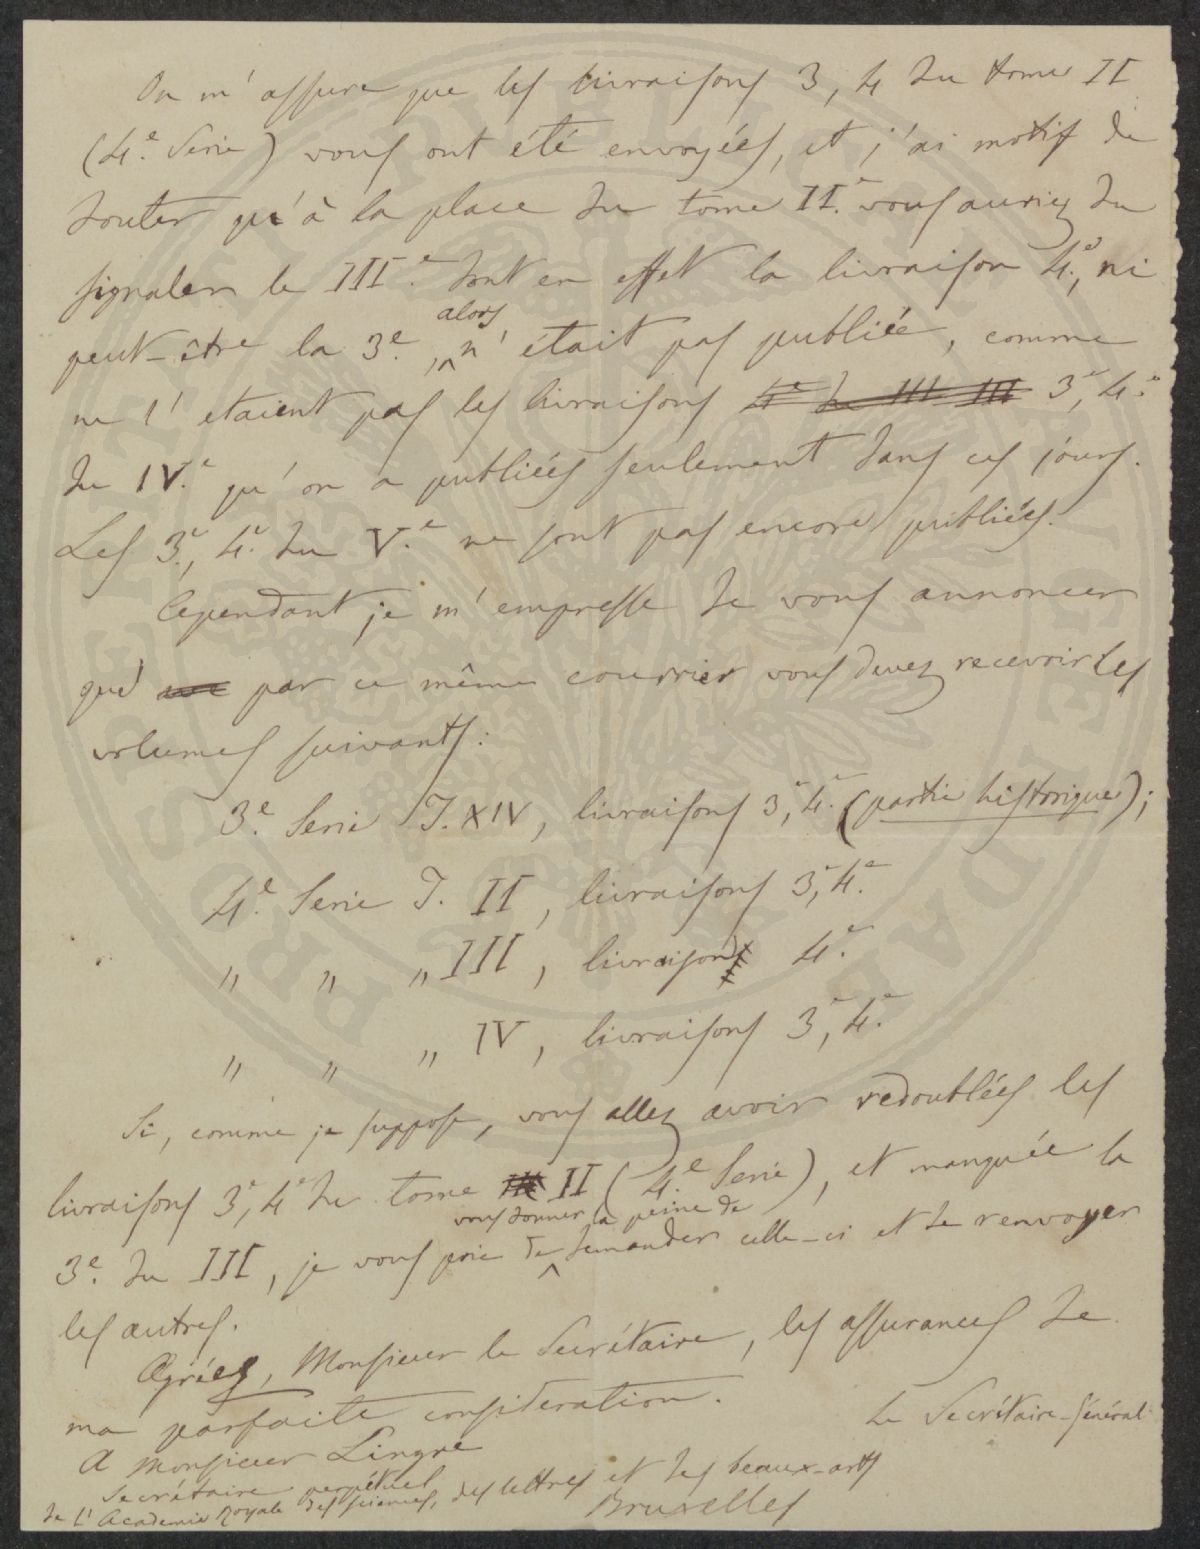 On m'assure que les livraisons 3, 4 du tome II
(4.e Serie) vous ont été envoyées, et j'ai motif de
douter qu'à la place du tome II.e vous auriez du
signaler le III.e dont en effet la livraison 4.e, ni
peut-être la 3.e, alors n'était pas publiée, comme
ne l'etaient pas les livraisons 3.e, 4.e
du IV.e qu'on a publiées seulement dans ces jours.
Les 3.e, 4.e du V.e ne sont pas encore publiées.
Cependant je m'empresse de vous annoncer
que par ce même courrier vous devez recevoir les
volumes suivants:
3.e Serie T. XIV, livraisons 3.e, 4.e (partie historique);
4.e Serie T. II, livraisons 3.e, 4.e
" " " III, livraison 4.e
" " " IV, livraisons 3.e, 4.e
Si, comme je suppose, vous allez avoir redoublées les
livraisons 3.e, 4.e de tome II (4.e Serie), et manquée la
3.e du III, je vous prie de vous donner la peine de demander celle-ci et de renvoyer
les autres.
Agréez, Monsieur le Secrétaire, les assurances de
ma parfaite consideration.
Le Secrétaire-Général
A Monsieur Lingre
Secrétaire perpétuel
de l'Academie Royale des sciences, des lettres et des beaux-arts
Bruxelles